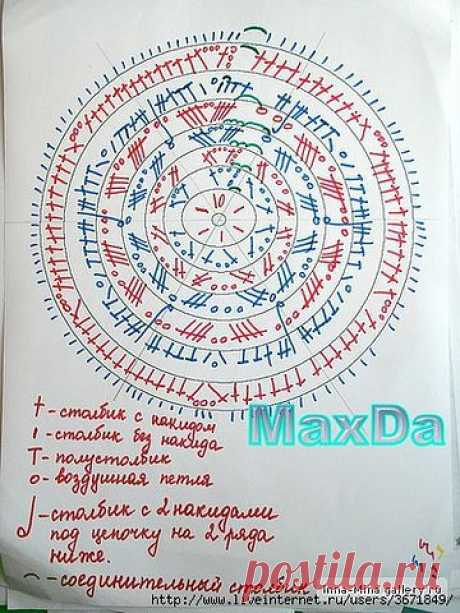 10
MaxDa
† - столбик с накидом
ı - столбик без накида
Т - полустолбик
о - воздушная петля
- столбик с 2 накидами
под цепочку на 2 ряда
ниже.
- соединительный столбик
postila.ru
Inna-Mina gallery.ru
>http://www.liveinternet.ru/users/3671849/